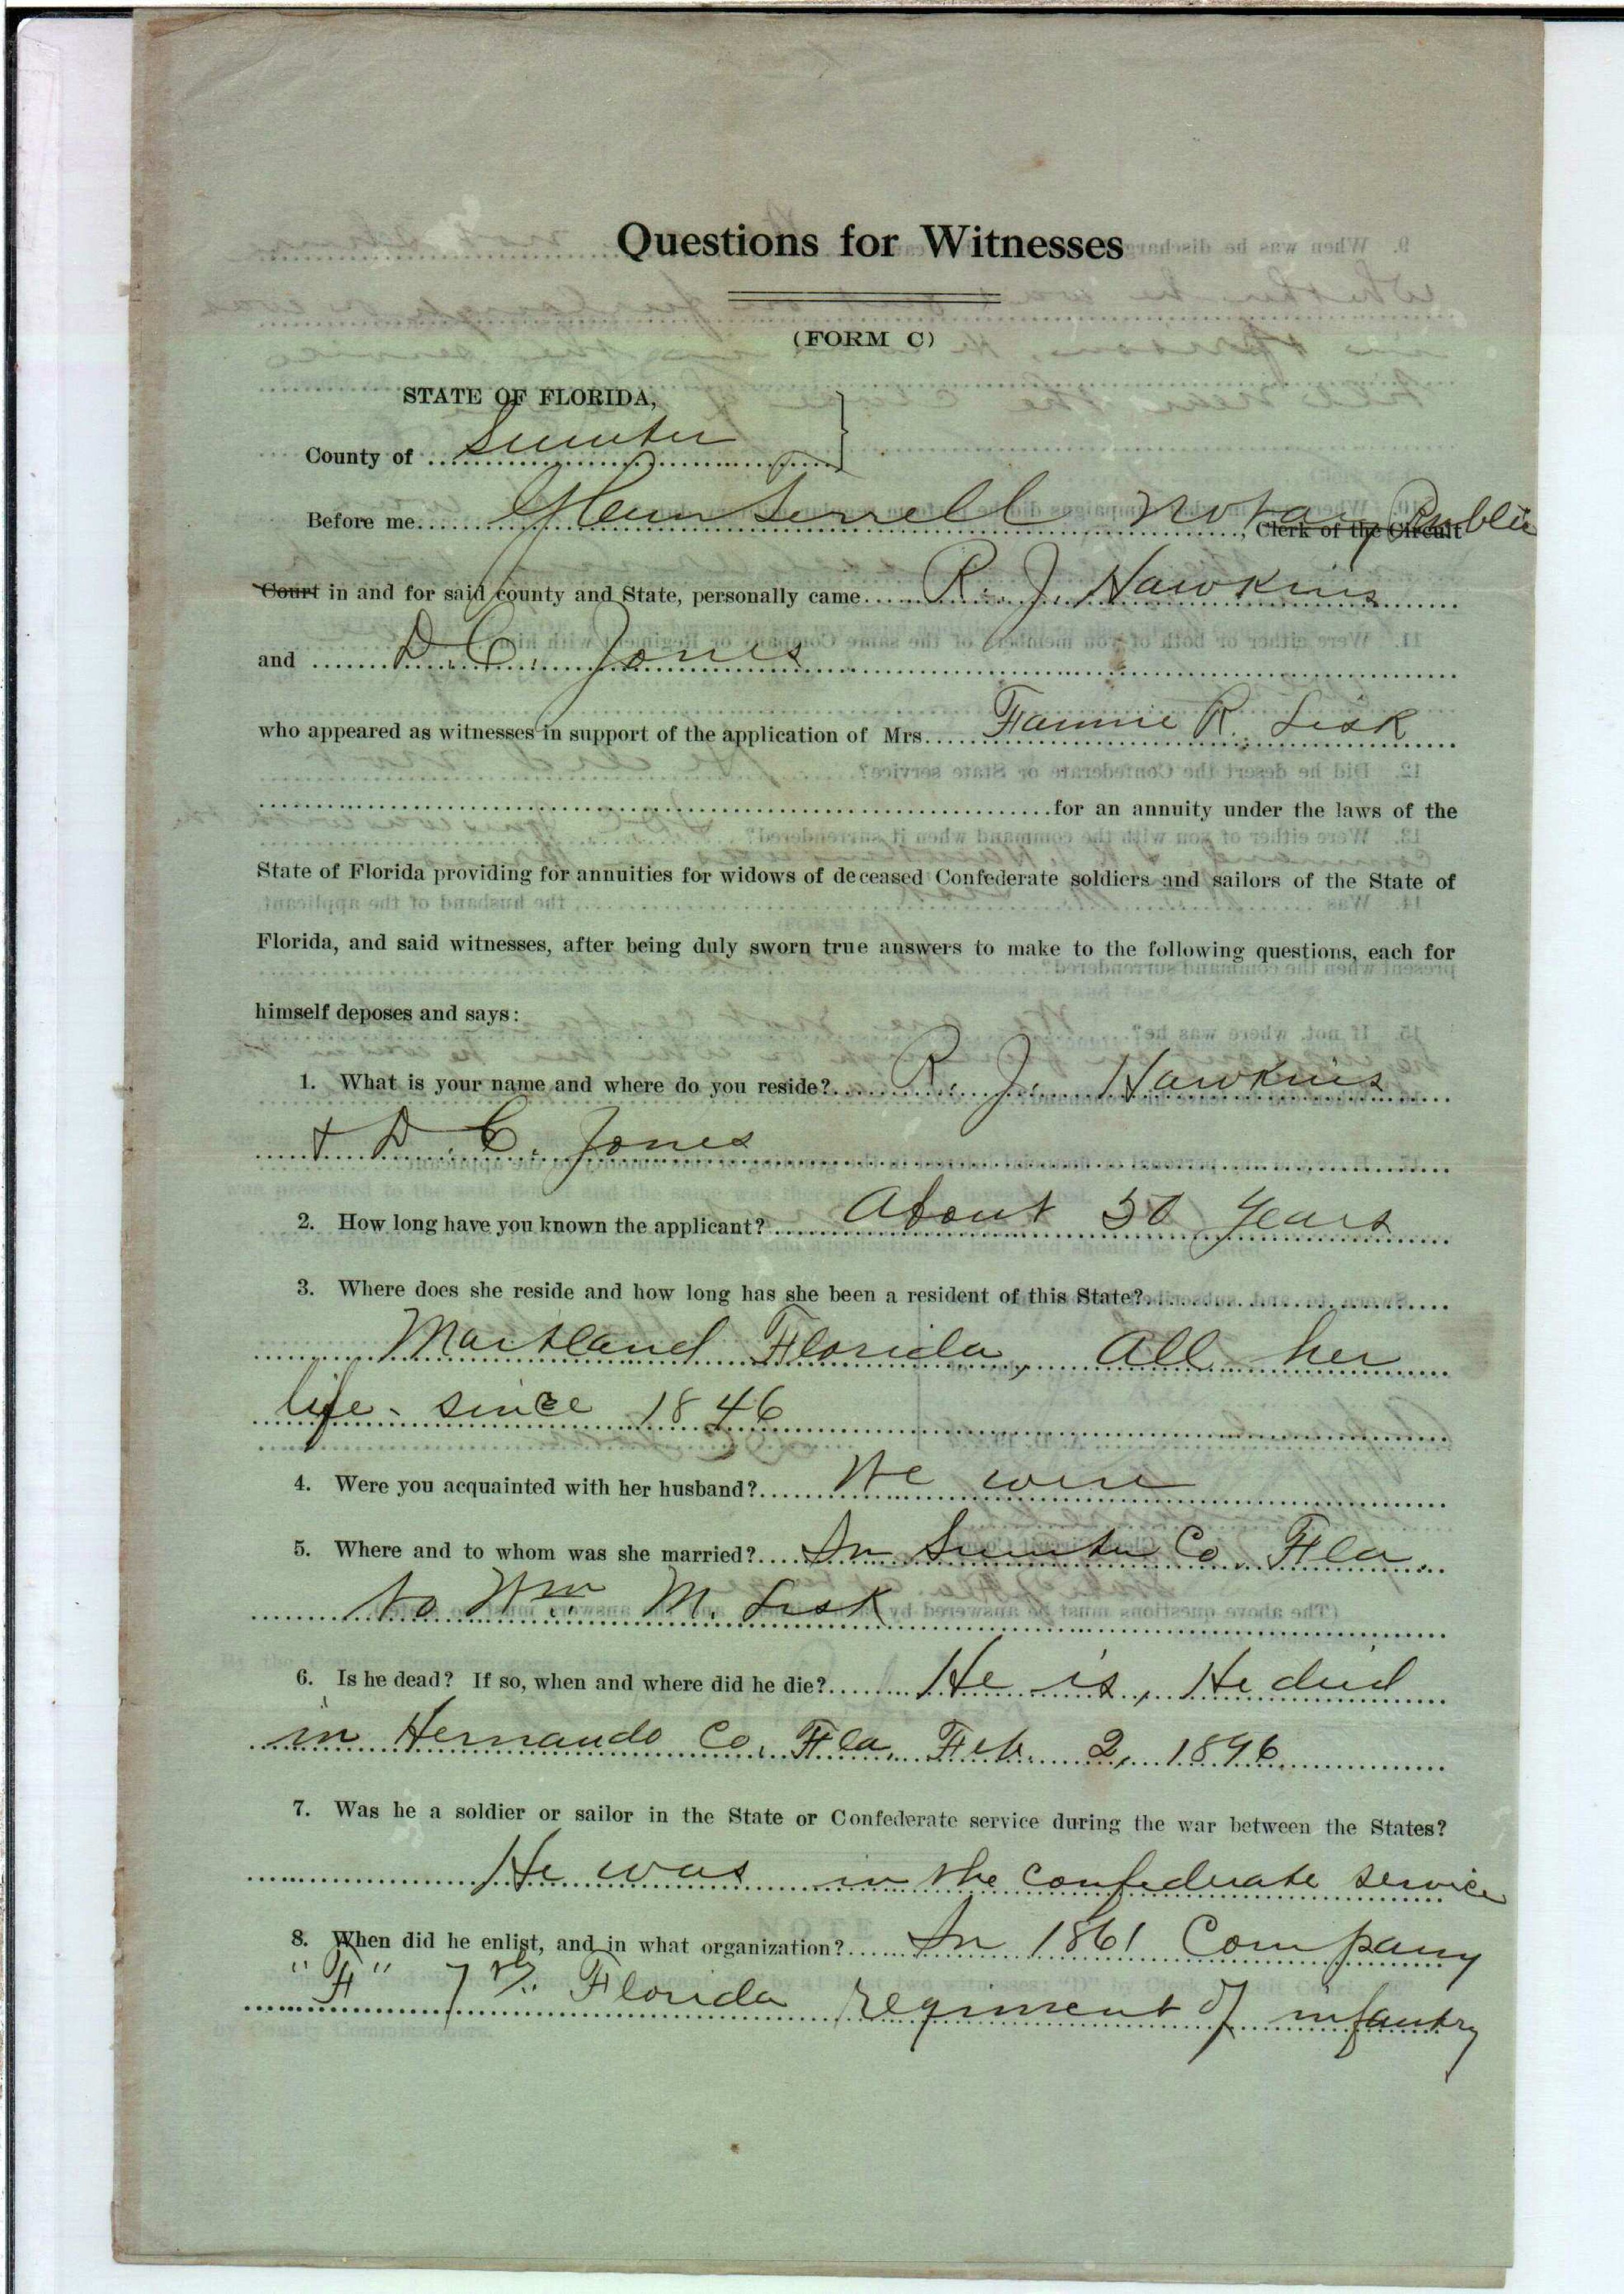 Questions for Witnesses
(FORM C)
STATE OF FLORIDA,
County of Sumter
Before me Glenn Terrell Notary Public, Clerk of the Circuit
Court in and for said county and State, personally came R. J. Hawkins
and D. C. Jones
who appeared as witnesses in support of the application of Mrs. Fannie R. Lisk
for an annuity under the laws of the
State of Florida providing for annuities for widows of deceased Confederate soldiers and sailors of the State of
Florida, and said witnesses, after being duly sworn true answers to make to the following questions, each for
himself deposes and says:
1. What is your name and where do you reside? R. J. Hawkins
+ D. C. Jones
2. How long have you known the applicant? About 50 years
3. Where does she reside and how long has she been a resident of this State?
Maitland Florida, All her
life - since 1846
4. Were you acquainted with her husband? We were
5. Where and to whom was she married? In Sumter Co. Fla.
to Wm. M. Lisk
6. Is he dead? If so, when and where did he die? He is, He died
in Hernando Co. Fla. Feb. 2, 1896
7. Was he a soldier or sailor in the State or Confederate service during the war between the States?
He was in the Confederate service
8. When did he enlist, and in what organization? In 1861 Company
"F" 7th Florida regiment of infantry